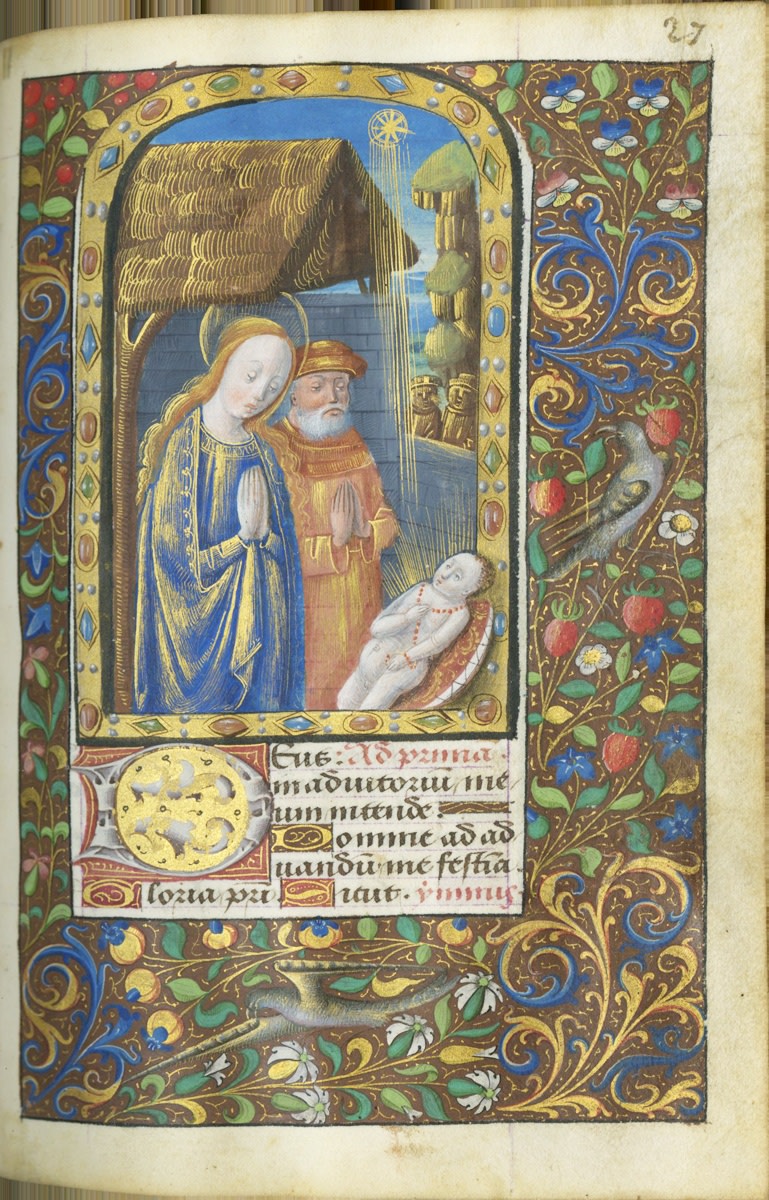 27
Deus: Ad prima
in adiutoriū me
um intende
Domine ad ad
iuuandū me festia
Gloria pri. Sicut. ymnus